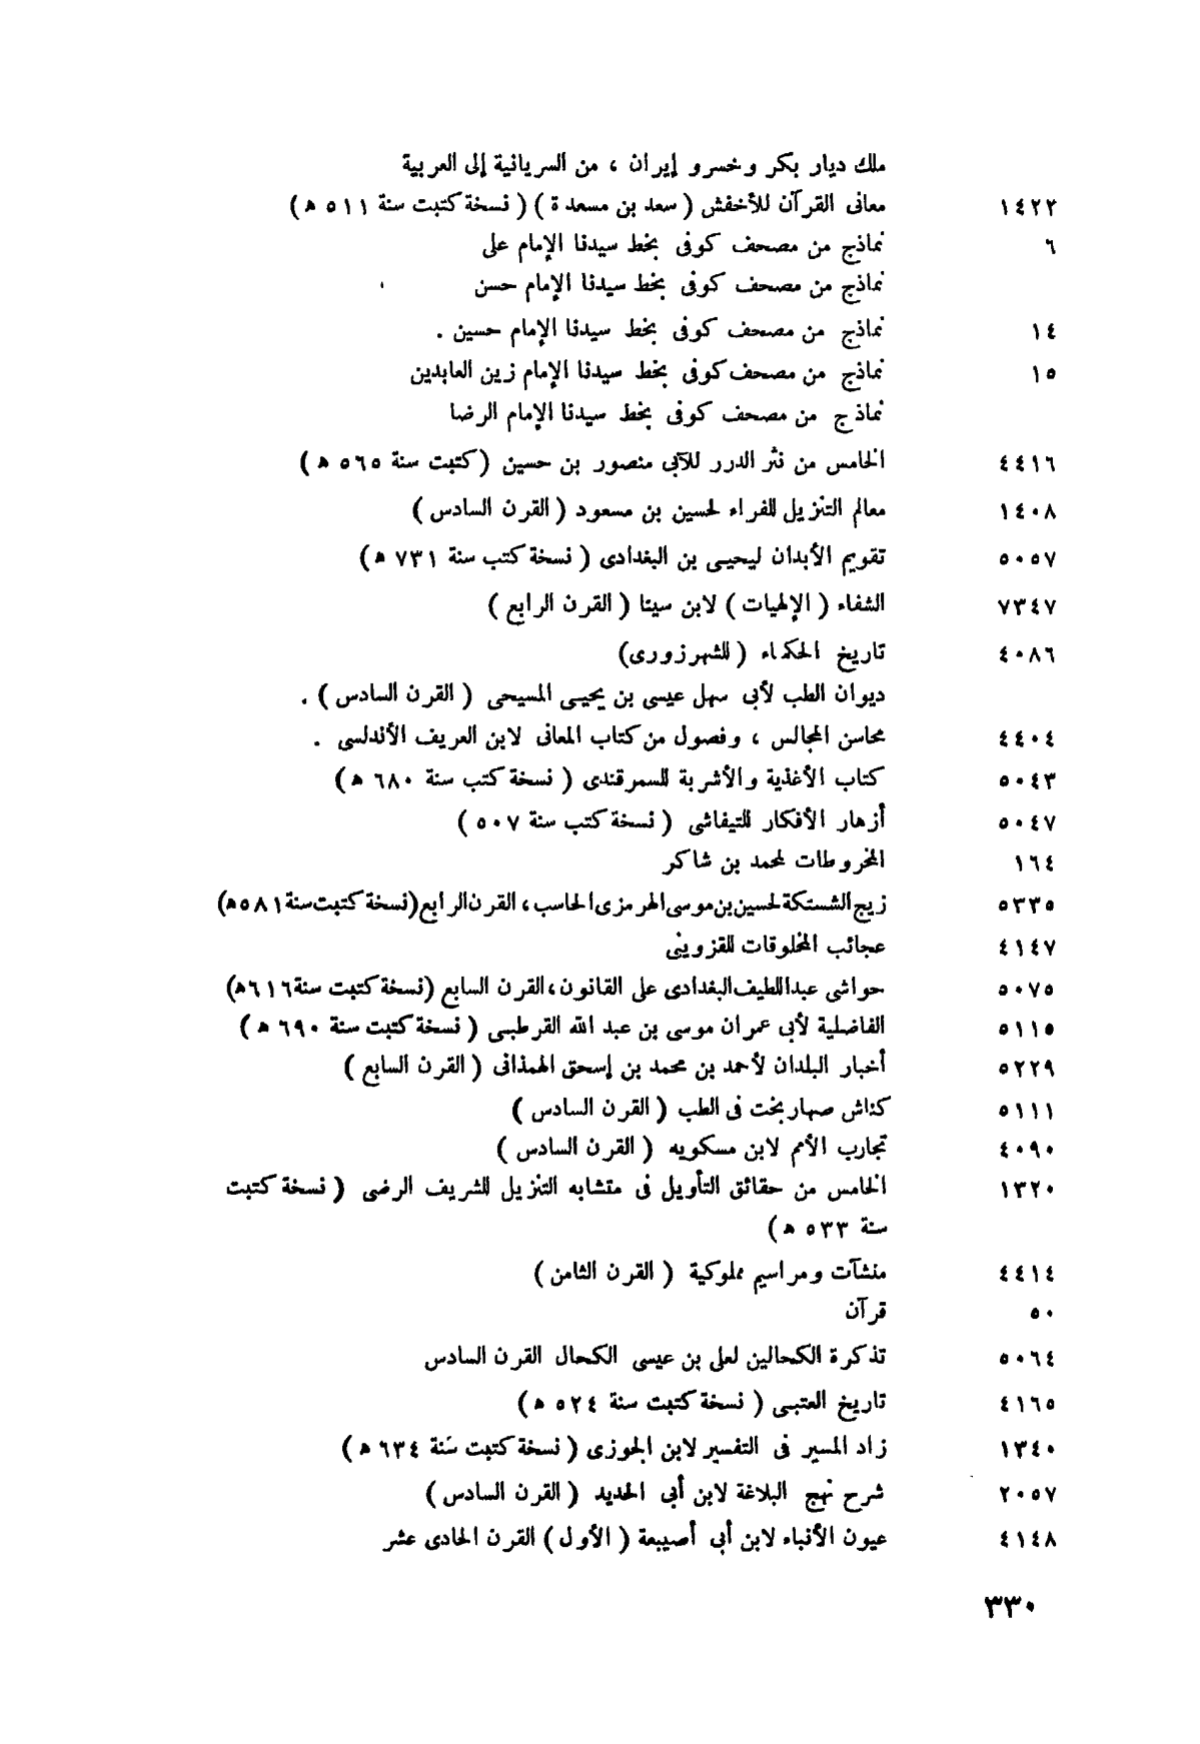 ملك ديار بكر وخسرو إيران ، من السريانية إلى العربية
١٤٢٢ معانى القرآن للأخفش ( سعد بن مسعدة ) ( نسخة كتبت سنة ٥١١ ه )
٦ نماذج من مصحف كوفى بخط سيدنا الإمام على
نماذج من مصحف كوفى بخط سيدنا الإمام حسن
١٤ نماذج من مصحف كوفى بخط سيدنا الإمام حسين .
١٥ نماذج من مصحف كوفى بخط سيدنا الإمام زين العابدين
نماذج من مصحف كوفى بخط سيدنا الإمام الرضا
٤٤١٦ الخامس من نثر الدرر للآبى منصور بن حسين ( كتبت سنة ٥٦٥ ه )
١٤٠٨ معالم التنزيل للفراء لحسين بن مسعود ( القرن السادس )
٥٠٥٧ تقويم الأبدان ليحيى بن البغدادى ( نسخة كتب سنة ٧٣١ ه )
٧٣٤٧ الشفاء ( الإلهيات ) لابن سينا ( القرن الرابع )
٤٠٨٦ تاريخ الحكماء ( للشهرزورى)
ديوان الطب لأبى سهل عيسى بن يحيى المسيحى ( القرن السادس ) .
٤٤٠٤ محاسن المجالس ، وفصول من كتاب المعانى لابن العريف الأندلسى .
٥٠٤٣ كتاب الأغذية والأشربة للسمرقندى ( نسخة كتب سنة ٦٨٠ ه )
٥٠٤٧ أزهار الأفكار للتيفاشى ( نسخة كتب سنة ٥٠٧ )
١٦٤ المخروطات لمحمد بن شاكر
٥٣٣٥ زيج الشستكة لحسين بن موسى الهرمزى الحاسب ، القرن الرابع (نسخة كتبت سنة ٥٨١ه)
٤١٤٧ عجائب المخلوقات للقزوينى
٥٠٧٥ حواشى عبد اللطيف البغدادى على القانون ، القرن السابع (نسخة كتبت سنة ٦١٦ه)
٥١١٥ الفاضلية لأبى عمران موسى بن عبد الله القرطبى ( نسخة كتبت سنة ٦٩٠ ه )
٥٢٢٩ أخبار البلدان لأحمد بن محمد بن إسحق الهمذانى ( القرن السابع )
٥١١١ كناش صهاربخت فى الطب ( القرن السادس )
٤٠٩٠ تجارب الأمم لابن مسكويه ( القرن السادس )
١٣٢٠ الخامس من حقائق التأويل فى متشابه التنزيل للشريف الرضى ( نسخة كتبت
سنة ٥٣٣ ه )
٤٤١٤ منشآت ومراسيم مملوكية ( القرن الثامن )
٥٠ قرآن
٥٠٦٤ تذكرة الكحالين لعلى بن عيسى الكحال القرن السادس
٤١٦٥ تاريخ العتبى ( نسخة كتبت سنة ٥٢٤ ه )
١٣٤٠ زاد المسير فى التفسير لابن الجوزى ( نسخة كتبت سنة ٦٣٤ ه )
٢٠٥٧ شرح نهج البلاغة لابن أبى الحديد ( القرن السادس )
٤١٤٨ عيون الأنباء لابن أبى أصيبعة ( الأول ) القرن الحادى عشر
٣٣٠